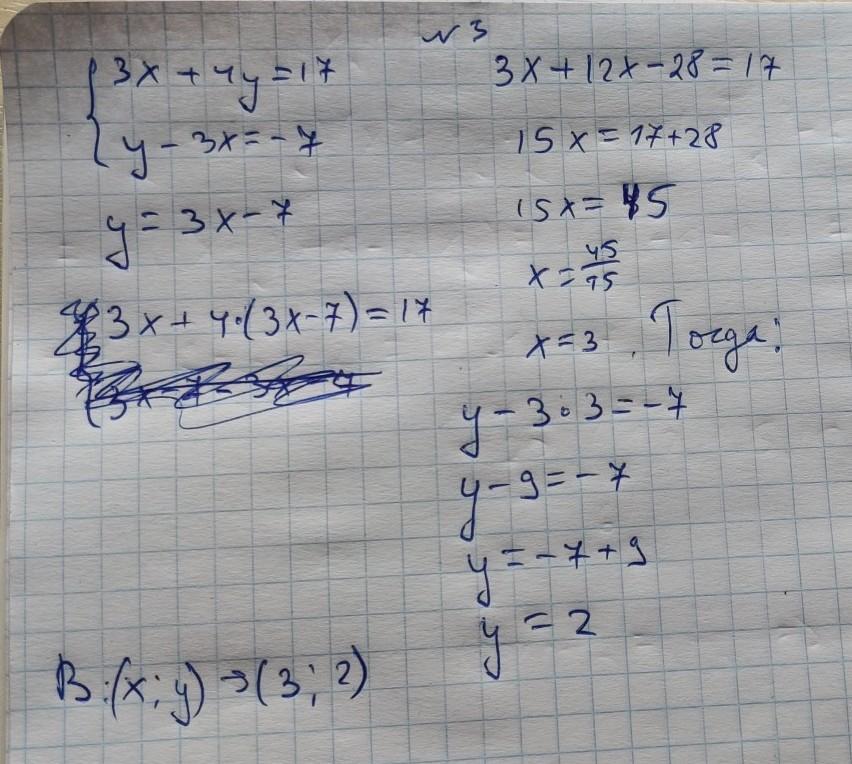 №3
3x + 4y = 17
y - 3x = -7
y = 3x - 7
3x + 4·(3x-7) = 17
3x + 12x - 28 = 17
15x = 17+28
15x = 45
x = 45/15
x = 3. Тогда:
y - 3·3 = -7
y - 9 = -7
y = -7 + 9
y = 2
В:(x; y) → (3; 2)